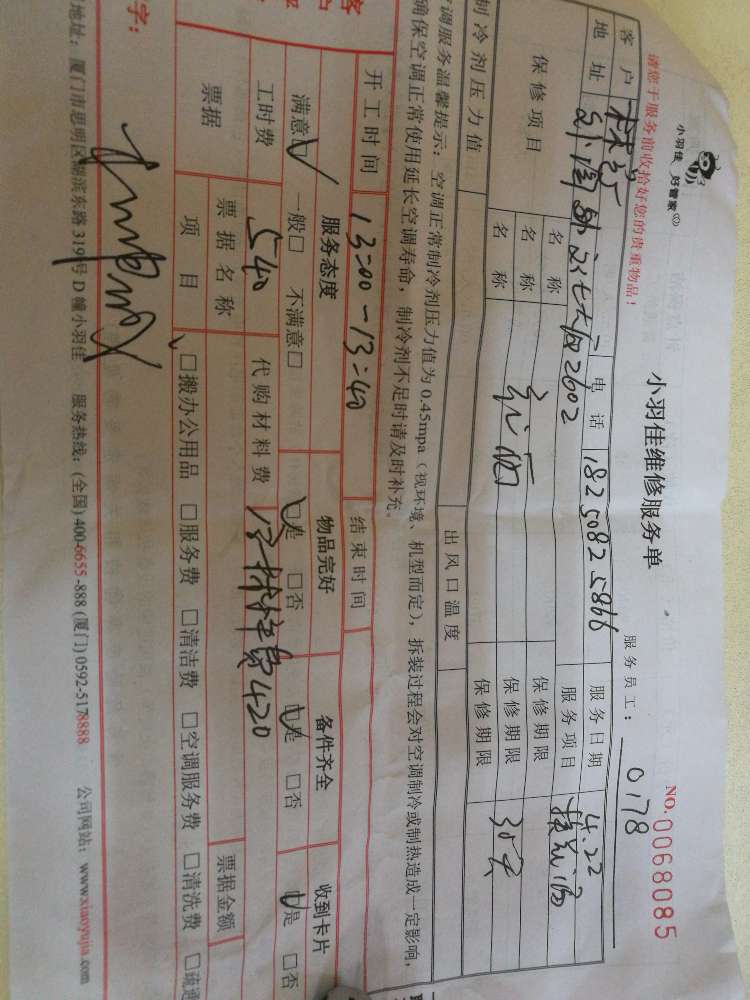 小羽佳 好管家
小羽佳维修服务单
NO.0068085
请您于服务前收拾好您的贵重物品！
服务员工： 0178
客户 电话 18250825866 服务日期 4.22
地址 2602 服务项目
保修项目 名称 保修期限
名称 保修期限 30天
名称 保修期限
制冷剂压力值 出风口温度
调服务温馨提示：空调正常制冷剂压力值为0.45mpa（视环境、机型而定），拆装过程会对空调制冷或制热造成一定影响，
确保空调正常使用延长空调寿命，制冷剂不足时请及时补充。
开工时间 13:00-13:40 结束时间
服务态度 物品完好 备件齐全 收到卡片
满意☑ 一般□ 不满意□ ☑是 □否 ☑是 □否 ☑是 □否
工时费 540 代购材料费 420
票据 票据名称 票据金额
项目 □搬办公用品 □服务费 □清洁费 □空调服务费 □清洗费 □疏通
字：
地址：厦门市思明区湖滨东路319号D幢小羽佳 服务热线：(全国)400-6655-888 (厦门)0592-5178888 公司网站：www.xiaoyujia.com